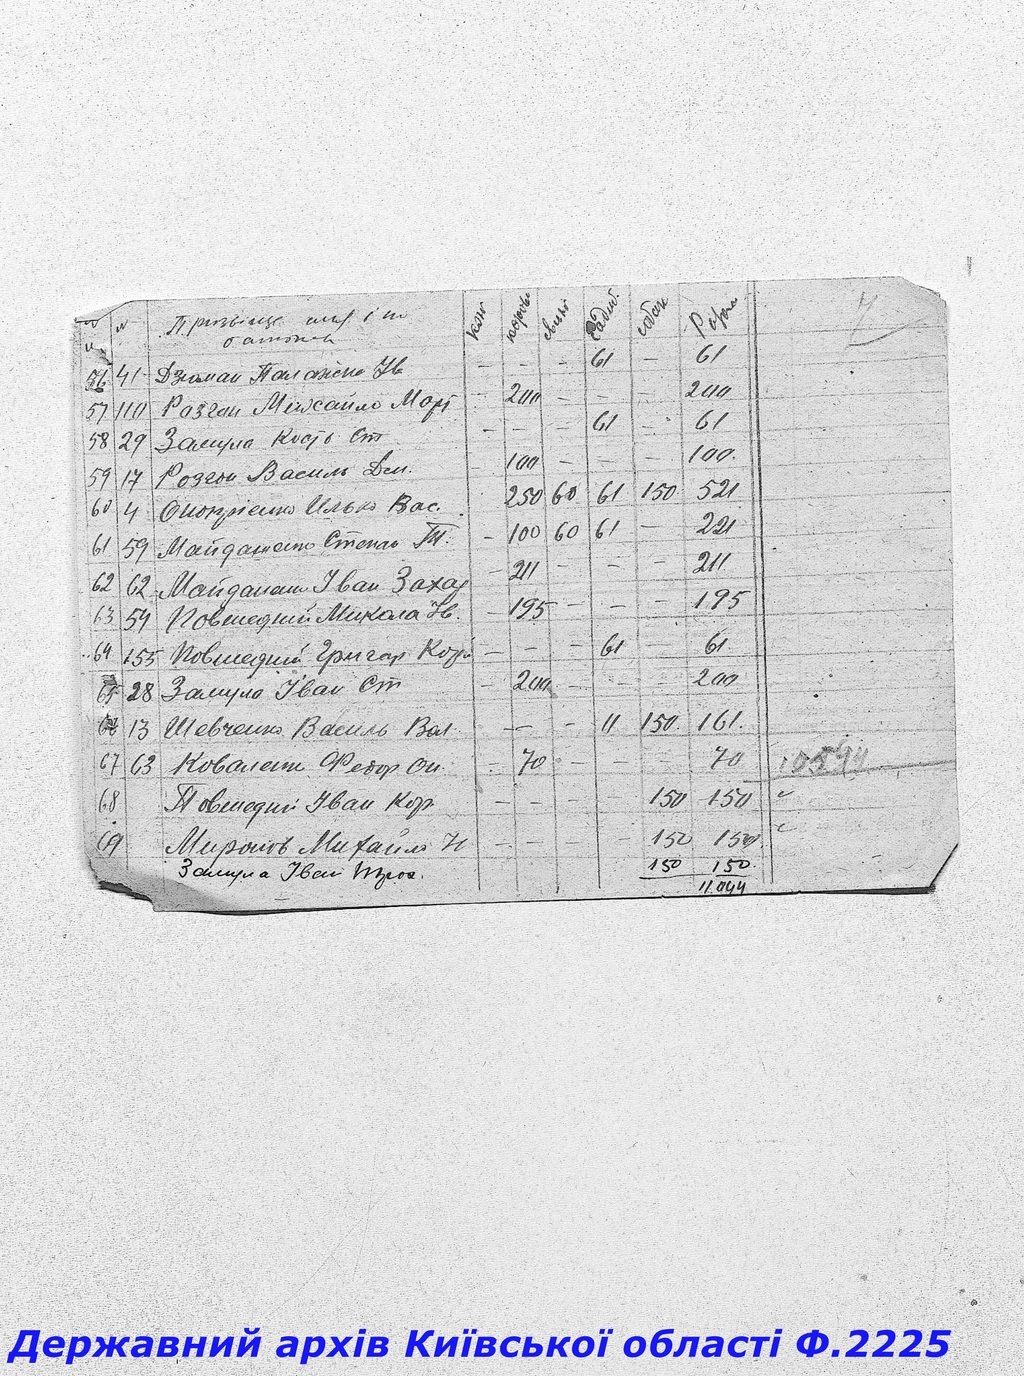 № № Прізвище имя і по коні корови свині садиб. собак Разом
батькові
56 41 Дзюман Палажка Ів - - - 61 - 61
57 110 Розгон Михайло Март - 200 - - - 200
58 29 Замула Кость Ст - - - 61 - 61
59 17 Розгон Василь Дем. 100 - - - 100.
60 4 Онопрієнко Илько Вас. 250 60 61 150 521
61 59 Степан Т. - 100 60 61 - 221
62 62 Майданеш Іван Захар - 211 - - - 211
63 54 Повшедній Микола Ів. - 195 - - - 195
64 155 Повшедний Григор Кор - - - 61 - 61
65 28 Замула Іван Ст - 200 - - - 200
66 13 Шевченко Василь Вол. - - - 11 150. 161.
67 63 Федор Он. - 70 - - - 70
68 Повшедній Іван Кор - - - - 150 150 "
69 Миронов Михайло И - - - - 150 150.
Замула Іван 150 150.
11.044
Державний архів Київської області Ф.2225